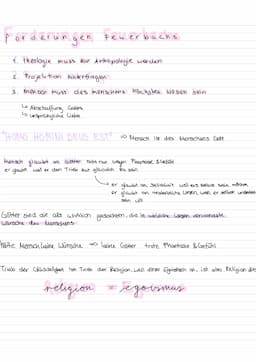 Forderungen Feuerbachs
1. Theologie muss zur Anthropologie werden
2. Projektion hinterfragen
3. Mensch muss des Menschens höchstes Wesen sein
↳ Abschaffung Gottes
↳ ursprüngliche Liebe
"HOMO HOMINI DEUS EST" => Mensch ist des Menschens Gott
Mensch glaubt an Götter nicht nur wegen Phantasie & Gefühl
er glaubt weil er den Trieb zur glücklich zu sein
er glaubt an Seligkeit weil er selbst sein möchte
er glaubt an Wesen, weil er selbst sein will
Götter sind die als wirklich gedachten, die in wirkliche Wesen verwandelte
Wünsche des Menschens
Hätte Mensch keine Wünsche => keine Götter trotz Phantasie & Gefühl
Trieb der Glückseligkeit ist Trieb der Religion, weil dieser Egoistisch ist, ist also Religion dies
religion = Egoismus